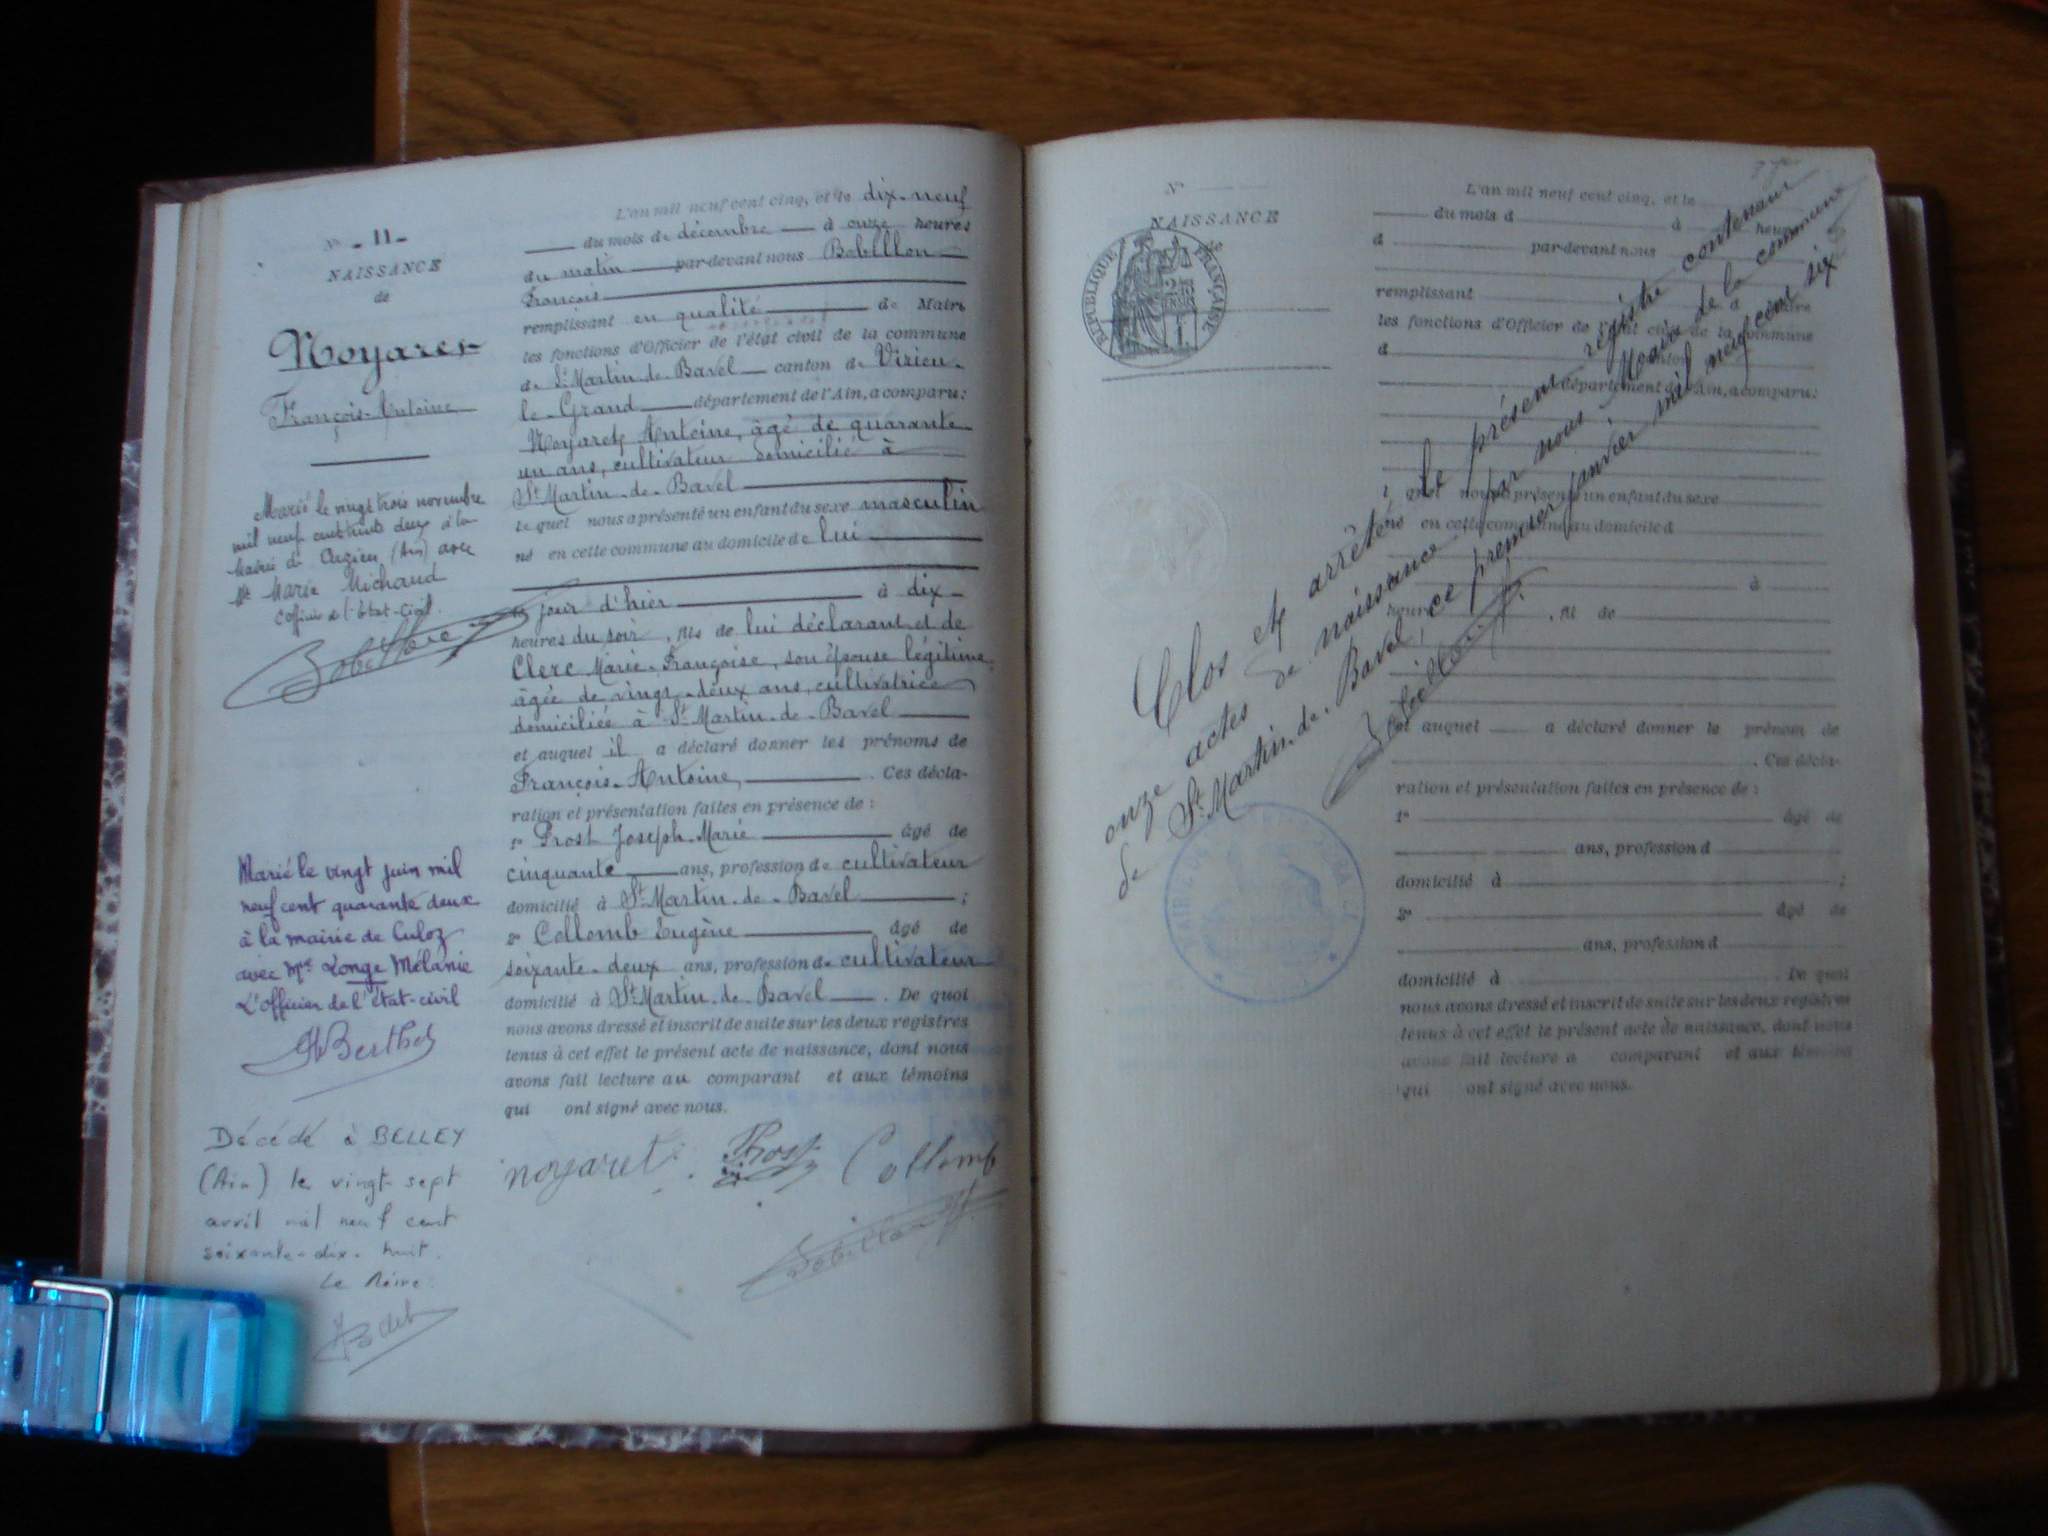 N° - 11 -
NAISSANCE
de
Noyaret
François-Antoine
Marié le vingt trois novembre
mil neuf cent trente deux à la
Mairie de (Ain) avec
Marie Michaud
L'officier de l'Etat-Civil.
Marié le vingt juin mil
neuf cent quarante deux
à la mairie de Culoz
avec Mlle Longe Mélanie
L'officier de l'état-civil
Berthet
Décédé à BELLEY
(Ain) le vingt sept
avril mil neuf cent
soixante-dix-huit.
Le Maire
L'an mil neuf cent cinq, et le dix-neuf
du mois de décembre à onze heures
du matin par-devant nous Bobillon
François
remplissant en qualité de Maire
les fonctions d'Officier de l'état civil de la commune
de St Martin-de-Bavel canton de Virieu-
le-Grand département de l'Ain, a comparu:
Noyaret Antoine, âgé de quarante
un ans, cultivateur domicilié à
St Martin-de-Bavel
lequel nous a présenté un enfant du sexe masculin
né en cette commune au domicile de lui
le jour d'hier à dix
heures du soir, fils de lui déclarant et de
Clerc Marie-Françoise, son épouse légitime,
âgée de vingt-deux ans, cultivatrice
domiciliée à St Martin-de-Bavel
et auquel il a déclaré donner les prénoms de
François-Antoine, . Ces décla-
ration et présentation faites en présence de :
1° Prost Joseph-Marie âgé de
cinquante ans, profession de cultivateur
domicilié à St Martin-de-Bavel ;
2° Collomb Eugène âgé de
soixante-deux ans, profession de cultivateur
domicilié à St Martin-de-Bavel . De quoi
nous avons dressé et inscrit de suite sur les deux registres
tenus à cet effet le présent acte de naissance, dont nous
avons fait lecture au comparant et aux témoins
qui ont signé avec nous.
noyaret Prost Collomb
Bobillon
N°
NAISSANCE
de
RÉPUBLIQUE FRANÇAISE
L'an mil neuf cent cinq, et le
du mois d à heures
d par-devant nous
remplissant
les fonctions d'Officier de l'état civil de la commune
d canton
département de l'Ain, a comparu:
quel nous a présenté un enfant du sexe
né en cette commune au domicile d
à
heures , fil de
et auquel a déclaré donner le prénom de
. Ces décla-
ration et présentation faites en présence de :
1° âgé de
ans, profession d
domicilié à ;
2° âgé de
ans, profession d
domicilié à . De quoi
nous avons dressé et inscrit de suite sur les deux registres
tenus à cet effet le présent acte de naissance, dont nous
avons fait lecture a comparant et aux témoins
qui ont signé avec nous.
Clos et arrêté le présent registre contenant
onze actes de naissance par nous Maire de la commune
de St Martin-de-Bavel, ce premier janvier mil neuf cent six
Bobillon